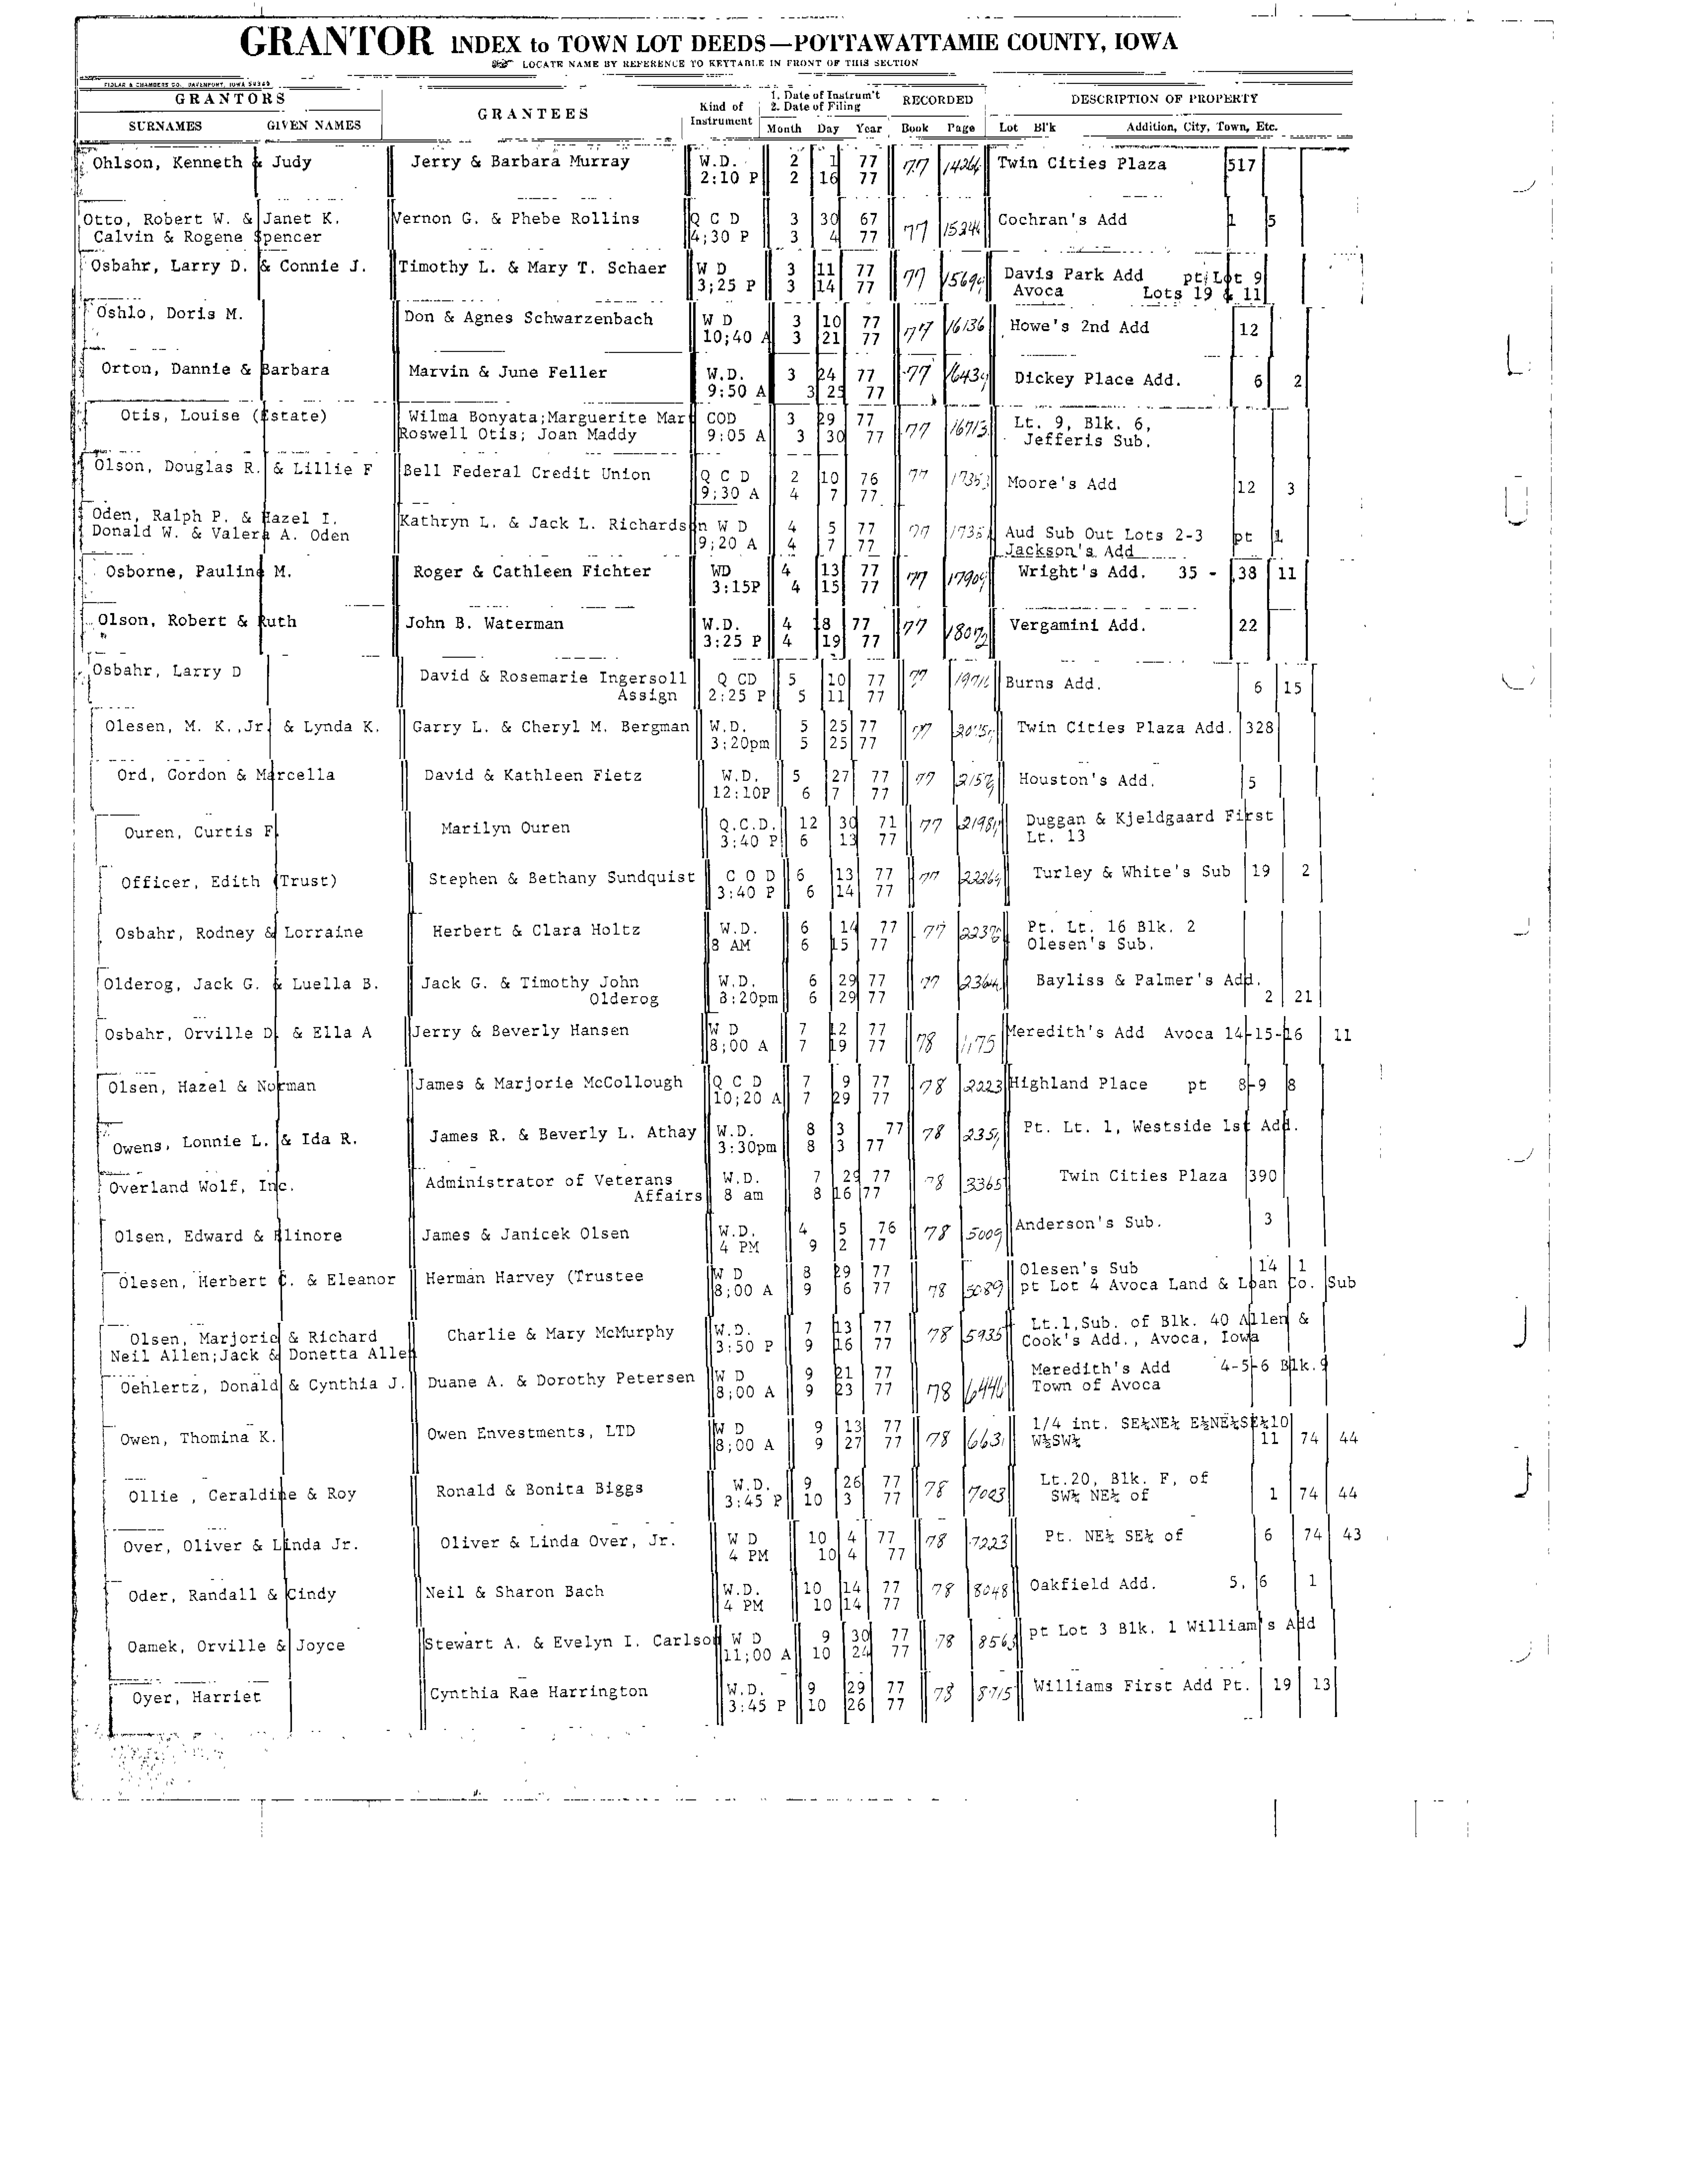 GRANTOR INDEX to TOWN LOT DEEDS—POTTAWATTAMIE COUNTY, IOWA
LOCATE NAME BY REFERENCE TO KEYTABLE IN FRONT OF THIS SECTION
FIDLAR & CHAMBERS CO., DAVENPORT, IOWA
GRANTORS GRANTEES Kind of Instrument 1. Date of Instrum't 2. Date of Filing RECORDED DESCRIPTION OF PROPERTY
SURNAMES GIVEN NAMES Month Day Year Book Page Lot Bl'k Addition, City, Town, Etc.
Ohlson, Kenneth & Judy Jerry & Barbara Murray W.D. 2 1 77 77 Twin Cities Plaza 517
2:10 P 2 16 77
Otto, Robert W. & Janet K. Vernon G. & Phebe Rollins Q C D 3 30 67 77 Cochran's Add 1 5
Calvin & Rogene Spencer 4;30 P 3 4 77
Osbahr, Larry D. & Connie J. Timothy L. & Mary T. Schaer W D 3 11 77 77 Davis Park Add pt Lot 9
3;25 P 3 14 77 Avoca Lots 19 & 11
Oshlo, Doris M. Don & Agnes Schwarzenbach W D 3 10 77 77 16136 Howe's 2nd Add 12
10;40 A 3 21 77
Orton, Dannie & Barbara Marvin & June Feller W.D. 3 24 77 77 Dickey Place Add. 6 2
9:50 A 3 25 77
Otis, Louise (Estate) Wilma Bonyata;Marguerite Mart COD 3 29 77 77 16713 Lt. 9, Blk. 6,
Roswell Otis; Joan Maddy 9:05 A 3 30 77 Jefferis Sub.
Olson, Douglas R. & Lillie F Bell Federal Credit Union Q C D 2 10 76 77 Moore's Add 12 3
9;30 A 4 7 77
Oden, Ralph P. & Hazel I. Kathryn L. & Jack L. Richardson W D 4 5 77 77 Aud Sub Out Lots 2-3 pt 1
Donald W. & Valera A. Oden 9;20 A 4 7 77 Jackson's Add
Osborne, Pauline M. Roger & Cathleen Fichter WD 4 13 77 77 Wright's Add. 35 - 38 11
3:15P 4 15 77
Olson, Robert & Ruth John B. Waterman W.D. 4 18 77 77 18072 Vergamini Add. 22
" 3:25 P 4 19 77
Osbahr, Larry D David & Rosemarie Ingersoll Q CD 5 10 77 77 Burns Add. 6 15
Assign 2:25 P 5 11 77
Olesen, M. K.,Jr & Lynda K. Garry L. & Cheryl M. Bergman W.D. 5 25 77 77 Twin Cities Plaza Add. 328
3:20pm 5 25 77
Ord, Gordon & Marcella David & Kathleen Fietz W.D. 5 27 77 77 Houston's Add. 5
12:10P 6 7 77
Ouren, Curtis F Marilyn Ouren Q.C.D. 12 30 71 77 Duggan & Kjeldgaard First
3:40 P 6 13 77 Lt. 13
Officer, Edith (Trust) Stephen & Bethany Sundquist C O D 6 13 77 77 Turley & White's Sub 19 2
3:40 P 6 14 77
Osbahr, Rodney & Lorraine Herbert & Clara Holtz W.D. 6 14 77 77 Pt. Lt. 16 Blk. 2
8 AM 6 15 77 Olesen's Sub.
Olderog, Jack G. & Luella B. Jack G. & Timothy John W.D. 6 29 77 77 Bayliss & Palmer's Add.
Olderog 3:20pm 6 29 77 2 21
Osbahr, Orville D & Ella A Jerry & Beverly Hansen W D 7 12 77 78 1175 Meredith's Add Avoca 14-15-16 11
8;00 A 7 19 77
Olsen, Hazel & Norman James & Marjorie McCollough Q C D 7 9 77 78 2223 Highland Place pt 8-9 8
10;20 A 7 29 77
Owens, Lonnie L. & Ida R. James R. & Beverly L. Athay W.D. 8 3 77 78 Pt. Lt. 1, Westside 1st Add.
3:30pm 8 3 77
Overland Wolf, Inc. Administrator of Veterans W.D. 7 29 77 78 3365 Twin Cities Plaza 390
Affairs 8 am 8 16 77
Olsen, Edward & Elinore James & Janicek Olsen W.D. 4 5 76 78 5009 Anderson's Sub. 3
4 PM 9 2 77
Olesen, Herbert C. & Eleanor Herman Harvey (Trustee W D 8 29 77 78 5089 Olesen's Sub 14 1
8;00 A 9 6 77 pt Lot 4 Avoca Land & Loan Co. Sub
Olsen, Marjorie & Richard Charlie & Mary McMurphy W.D. 7 13 77 78 5935 Lt.1,Sub. of Blk. 40 Allen &
Neil Allen;Jack & Donetta Allen 3:50 P 9 16 77 Cook's Add., Avoca, Iowa
Oehlertz, Donald & Cynthia J. Duane A. & Dorothy Petersen W D 9 21 77 78 6446 Meredith's Add 4-5-6 Blk.9
8;00 A 9 23 77 Town of Avoca
Owen, Thomina K. Owen Envestments, LTD W D 9 13 77 78 6631 1/4 int. SE¼NE¼ E½NE¼SE¼10
8;00 A 9 27 77 W½SW¼ 11 74 44
Ollie , Geraldine & Roy Ronald & Bonita Biggs W.D. 9 26 77 78 7003 Lt.20, Blk. F, of
3:45 P 10 3 77 SW¼ NE¼ of 1 74 44
Over, Oliver & Linda Jr. Oliver & Linda Over, Jr. W D 10 4 77 78 7223 Pt. NE¼ SE¼ of 6 74 43
4 PM 10 4 77
Oder, Randall & Cindy Neil & Sharon Bach W.D. 10 14 77 78 8048 Oakfield Add. 5, 6 1
4 PM 10 14 77
Oamek, Orville & Joyce Stewart A. & Evelyn I. Carlson W D 9 30 77 78 pt Lot 3 Blk. 1 William's Add
11;00 A 10 24 77
Oyer, Harriet Cynthia Rae Harrington W.D. 9 29 77 78 8715 Williams First Add Pt. 19 13
3:45 P 10 26 77